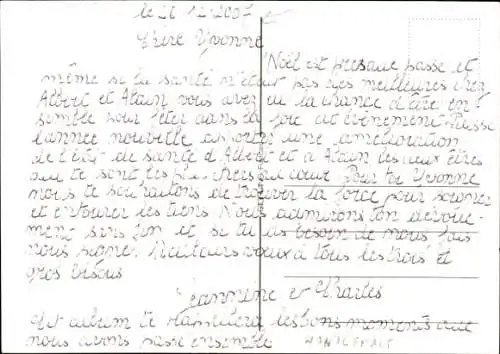 le 26 12 2007
Chère Yvonne
Noël est presque passé et
même si la santé n'était pas des meilleures chez
Albert et Alain vous avez eu la chance d'être en
semble pour fêter dans la joie cet événement. Puisse
l'année nouvelle apporter une amélioration
de l'état de santé d'Albert et à Alain les deux êtres
qui te sont les plus chers au cœur. Pour toi Yvonne
nous te souhaitons de trouver la force pour soigner
et entourer les tiens. Nous admirons ton dévoue-
ment sans fin et si tu as besoin de nous fais
nous signe. Meilleurs vœux à tous les trois et
gros bisous
Jeannine et Charles
Cet album te rappellera les bons moments que
nous avons passé ensemble